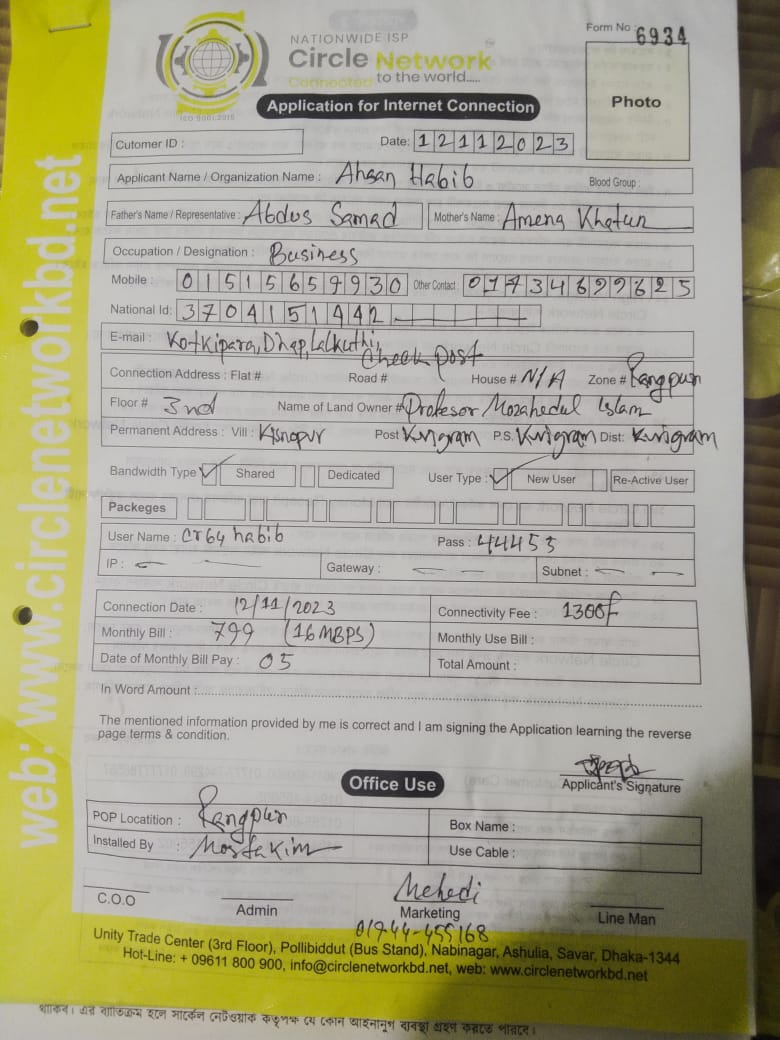 NATIONWIDE ISP
Circle Network
Connected to the world.....
ISO 9001:2015
Form No : 6934
Photo
Application for Internet Connection
Cutomer ID :
Date: 12112023
Applicant Name / Organization Name : Ahsan Habib Blood Group :
Father's Name / Representative : Abdus Samad Mother's Name : Amena Khatun
Occupation / Designation : Business
Mobile : 01515659930 Other Contact : 01734699625
National Id: 3704151442
E-mail : Kotkipara, Dhap, Lalkuthi,
Check post
Connection Address : Flat # Road # House # N/A Zone # Rangpur
Floor # 3nd Name of Land Owner # Profesor Mozahedul Islam
Permanent Address : Vill : Post Kurigram P.S. Kurigram Dist: Kurigram
Bandwidth Type ✓ Shared Dedicated User Type : ✓ New User Re-Active User
Packeges
User Name : cr64habib Pass : 44453
IP : Gateway : Subnet :
Connection Date : 12/11/2023 Connectivity Fee : 1300/-
Monthly Bill : 799 (16MBPS) Monthly Use Bill :
Date of Monthly Bill Pay : 05 Total Amount :
In Word Amount :
The mentioned information provided by me is correct and I am signing the Application learning the reverse
page terms & condition.
Applicant's Signature
Office Use
POP Locatition : Rangpur Box Name :
Installed By : Mostakim Use Cable :
C.O.O Admin Mehedi Marketing Line Man
01944-455168
Unity Trade Center (3rd Floor), Pollibiddut (Bus Stand), Nabinagar, Ashulia, Savar, Dhaka-1344
Hot-Line: + 09611 800 900, info@circlenetworkbd.net, web: www.circlenetworkbd.net
web: www.circlenetworkbd.net
থাকিব। এর ব্যতিক্রম হলে সার্কেল নেটওয়াক কতৃপক্ষ যে কোন আইনানুগ ব্যবস্থা গ্রহণ করতে পারবে।